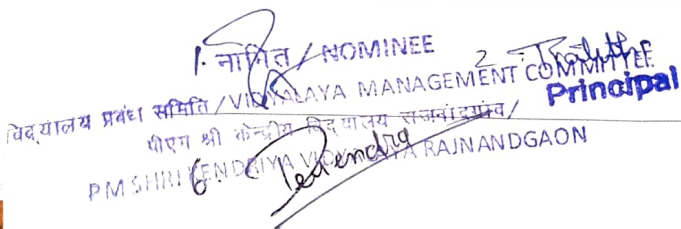 1. नामित / NOMINEE 2.
विद्यालय प्रबंध समिति / VIDYALAYA MANAGEMENT COMMITTEE
Principal
पीएम श्री केन्द्रीय विद्यालय राजनांदगांव /
6.
PM SHRI KENDRIYA VIDYALAYA RAJNANDGAON